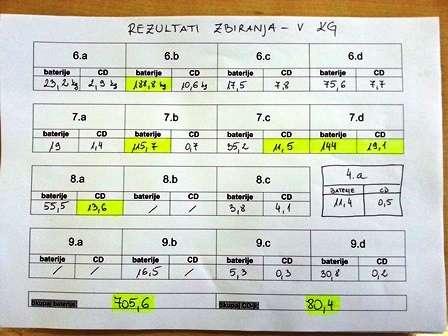 REZULTATI ZBIRANJA - V KG
6.a 6.b 6.c 6.d
baterije CD baterije CD baterije CD baterije CD
23,2 kg 2,9 kg 10,6 kg 17,5 7,8 75,6 7,7
7.a 7.b 7.c 7.d
baterije CD baterije CD baterije CD baterije CD
19 1,4 115,7 0,7 35,2 11,5 144 19,1
8.a 8.b 8.c
baterije CD baterije CD baterije CD
55,5 13,6 / / 3,8 4,1
4.a
BATERIJE CD
11,4 0,5
9.a 9.b 9.c 9.d
baterije CD baterije CD baterije CD baterije CD
/ / 16,5 / 5,3 0,3 30,8 0,2
Skupaj baterije: 705,6 Skupaj CD-ji: 80,4